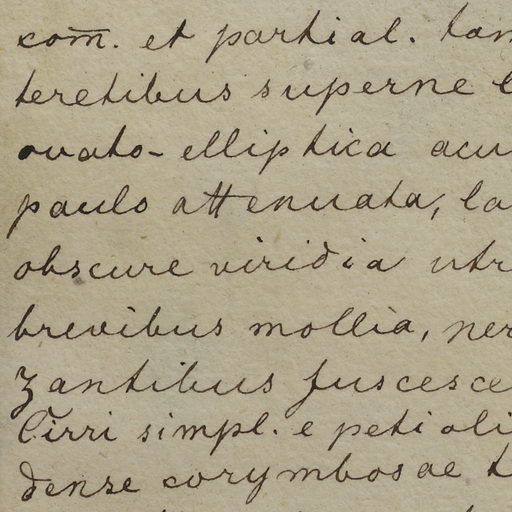 com̅. et partial. tan
teretibus superne
ovato-elliptica acu
paulo attenuata, la
obscure viridia utr
brevibus mollia, ner
zantibus fuscesce
Cirri simpl. e petioli
dense corymbosae t